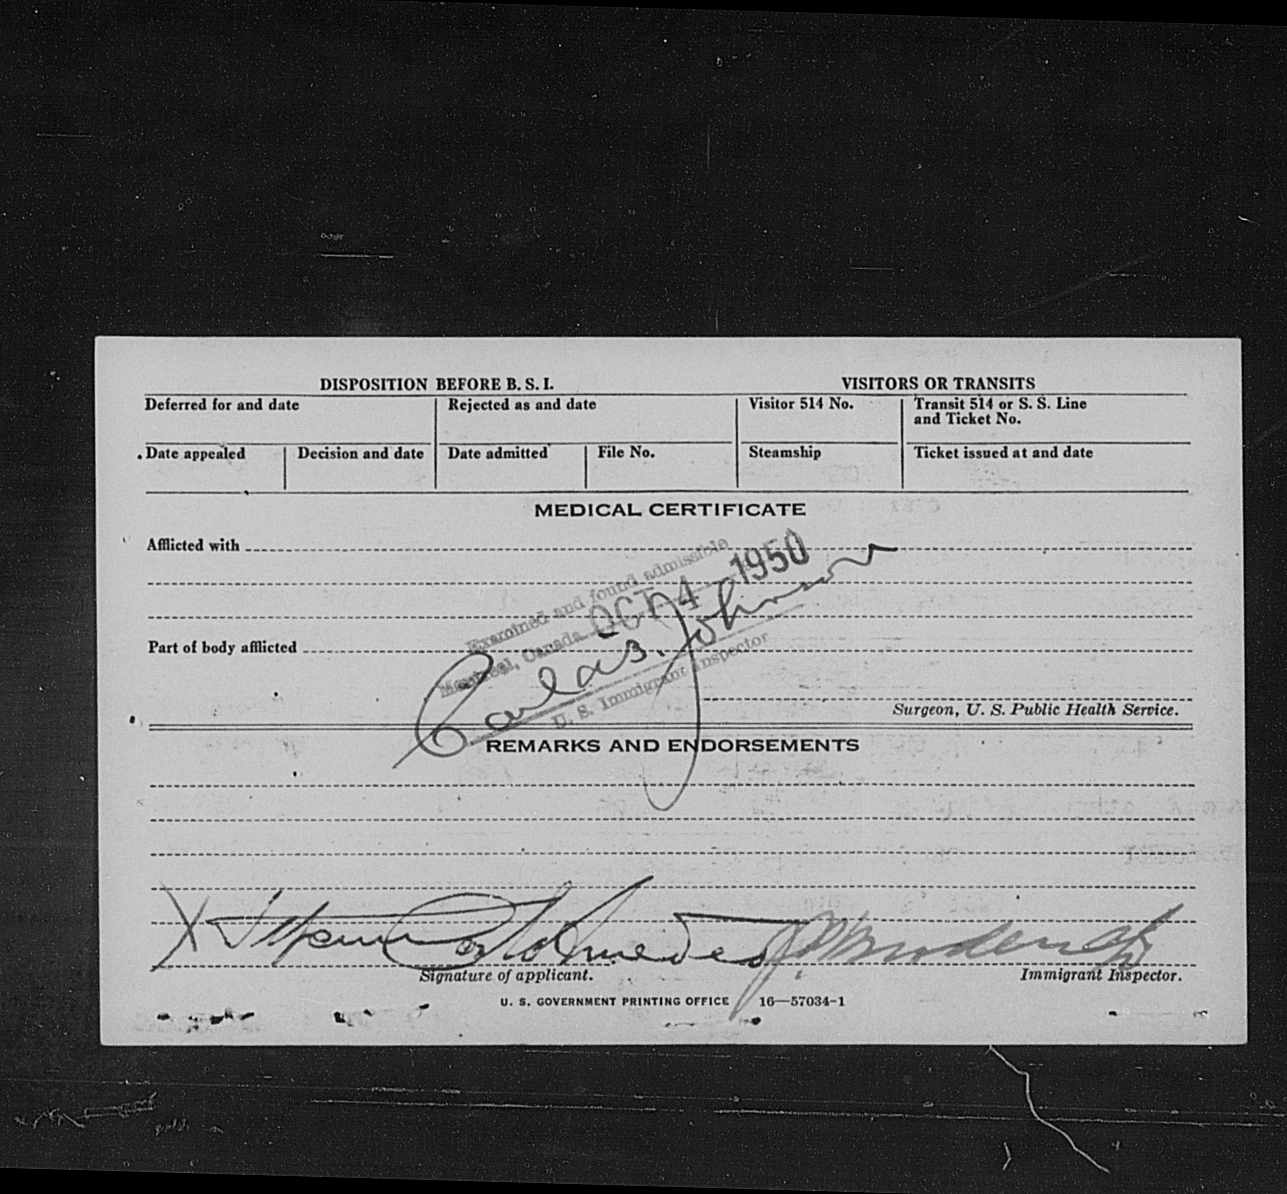 DISPOSITION BEFORE B. S. I.
VISITORS OR TRANSITS
Deferred for and date
Rejected as and date
Visitor 514 No.
Transit 514 or S. S. Line
and Ticket No.
Date appealed
Decision and date
Date admitted
File No.
Steamship
Ticket issued at and date
MEDICAL CERTIFICATE
Afflicted with
Examined and found admissible
Montreal, Canada OCT 4 1950
Johnson
U. S. Immigrant Inspector
Part of body afflicted
Surgeon, U. S. Public Health Service.
REMARKS AND ENDORSEMENTS
X
Signature of applicant.
Immigrant Inspector.
U. S. GOVERNMENT PRINTING OFFICE 16—57034-1